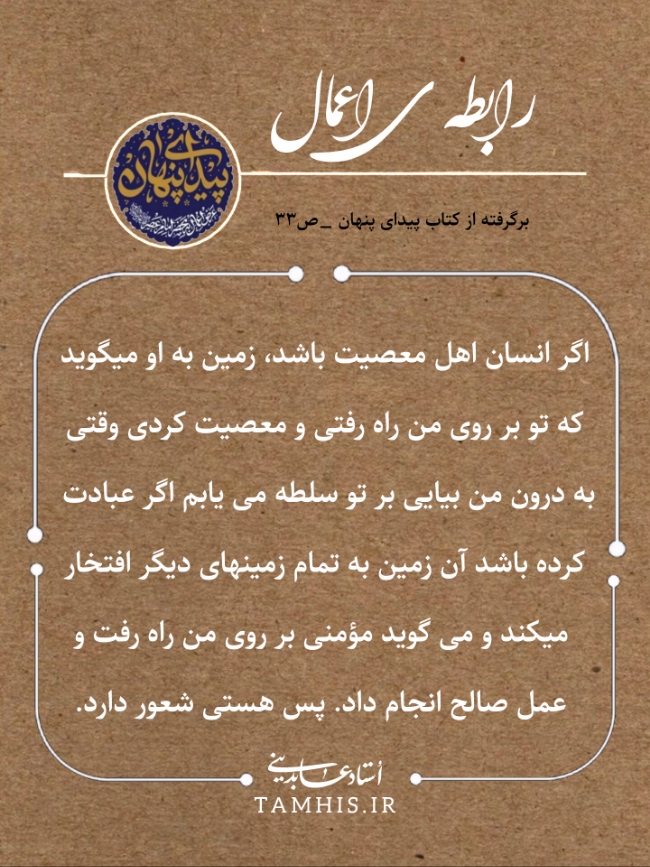 رابطه ی اعمال
پیدای پنهان
برگرفته از کتاب پیدای پنهان _ص۳۳
اگر انسان اهل معصیت باشد، زمین به او میگوید
که تو بر روی من راه رفتی و معصیت کردی وقتی
به درون من بیایی بر تو سلطه می یابم اگر عبادت
کرده باشد آن زمین به تمام زمینهای دیگر افتخار
میکند و می گوید مؤمنی بر روی من راه رفت و
عمل صالح انجام داد. پس هستی شعور دارد.
استاد عابدینی
TAMHIS.IR